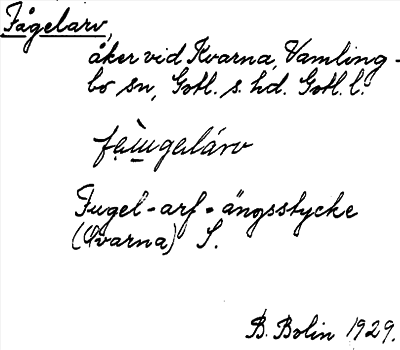 Fågelarv,
åker vid Kvarna, Vamling-
bo sn, Gotl. s. hd. Gotl. l.
Fugel-arf-ängsstycke
(Qvarna) S.
B. Bolin 1929.